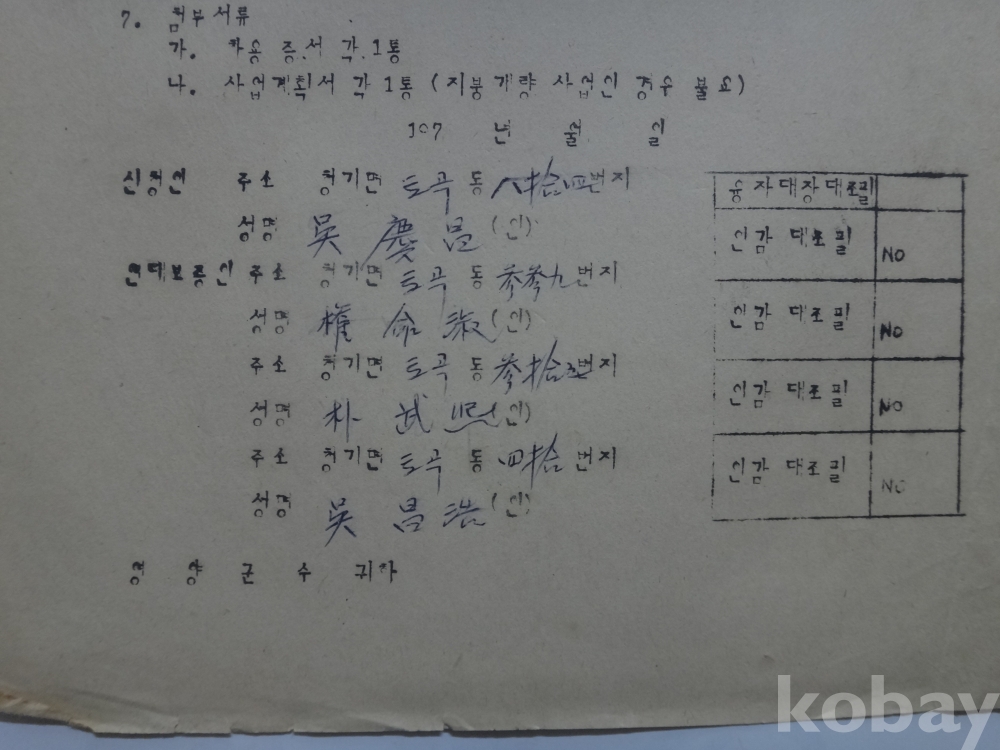 7. 첨부서류
가. 차용 증.서 각.1통
나. 사업계획서 각1통 (지붕개량 사업인 경우 불요)
197 년 월 일
신청인 주소 청기면 토곡 동 八拾四번지
성명 吳 慶 昌 (인)
연대보증인 주소 청기면 토곡 동 参参九번지
성명 權 命 淑 (인)
주소 청기면 토곡 동 参拾 번지
성명 朴 武 熙 (인)
주소 청기면 토곡 동 四拾 번지
성명 吳 昌 浩 (인)
영 양 군 수 귀하
융자대장대조필
인감 대조필 NO
인감 대조필 NO
인감 대조필 NO
인감 대조필 NO
kobay